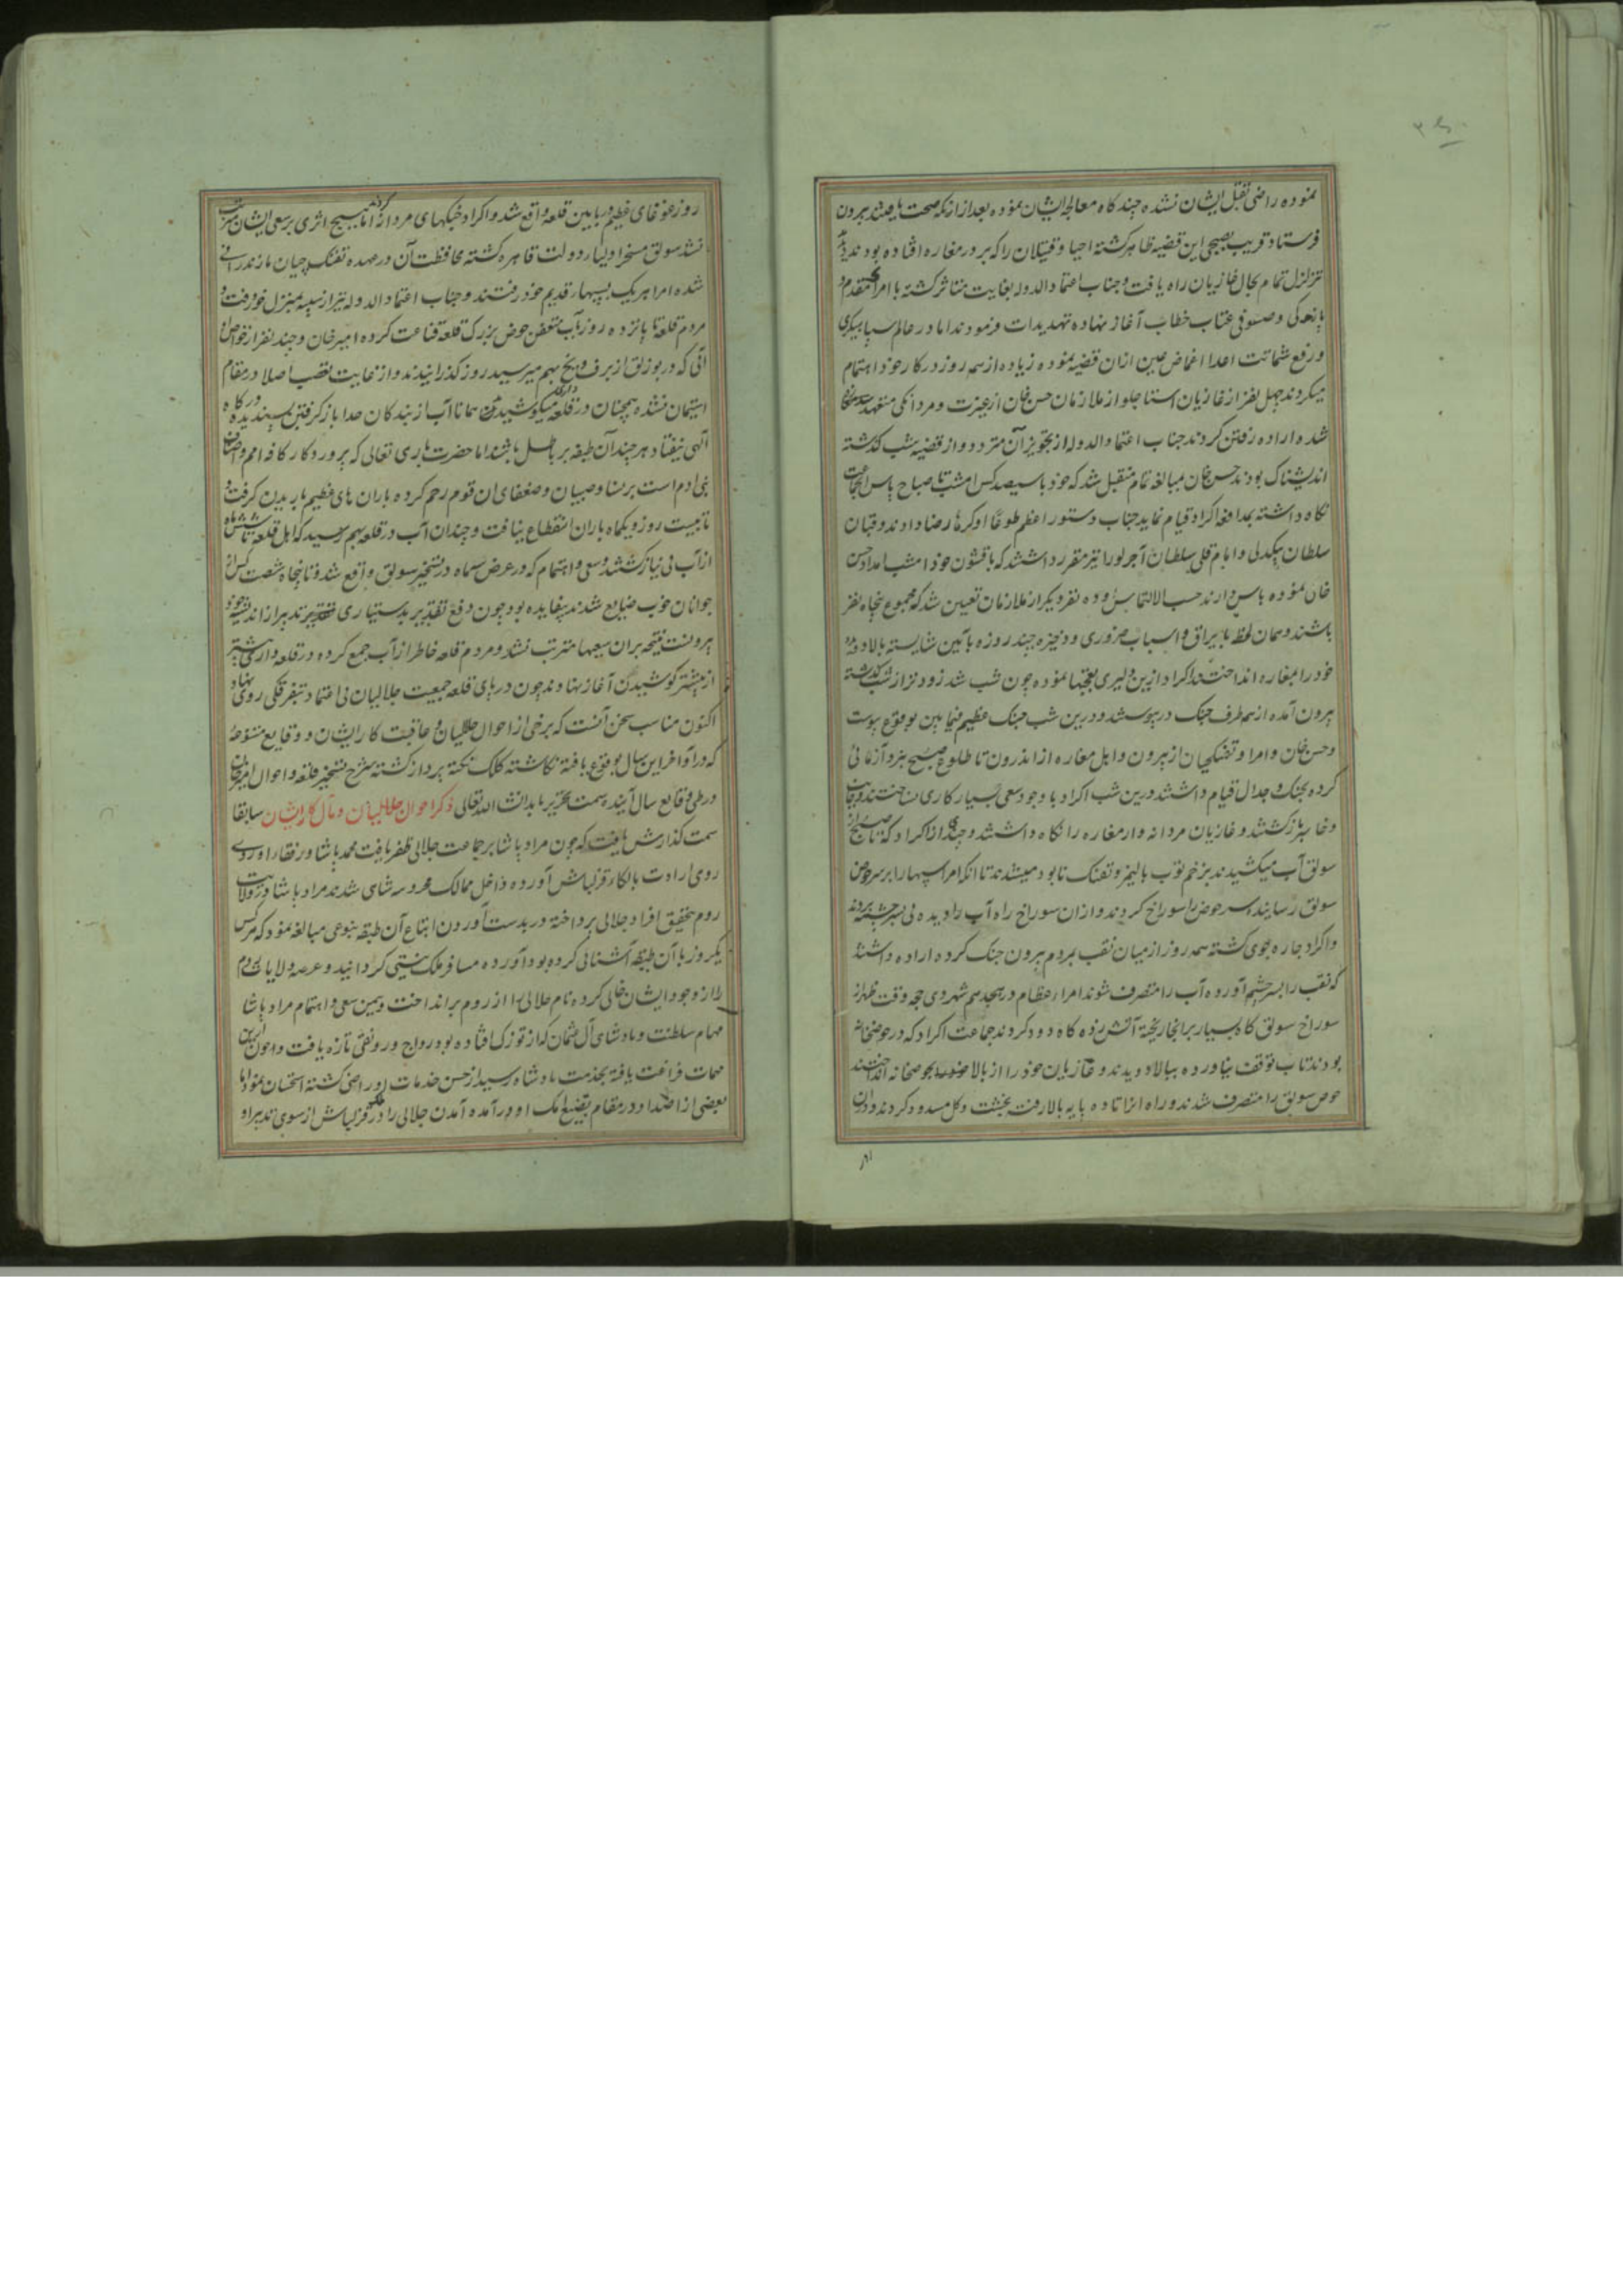 نموده راضی بقتل ایشان نشده چند کاه معالجه ایشان نموده بعد از انکه صحت یافتند بیرون
فرستاد قریب بصبحی این قضیه ظاهر کشته احیا و قتیلان را که بر در مغاره افتاده بودند
تزلزل تمام بحال غازیان راه یافت و جناب اعتماد الدوله بغایت متاثر کشته با امرا
و صوفی عتاب خطاب آغاز نهاده تهدیدات فرمودند اما در عالم سپاهیکری
و رفع شماتت اعدا اغماض عین ازان قضیه نموده زیاده از سه روز در کار خود اهتمام
میکردند چهل نفر از غازیان استاجلو از ملازمان حسن خان از غیرت و مردانکی متعهد
شده اراده رفتن کردند جناب اعتماد الدوله از تجویز آن متردد و از قضیه شب کذشته
اندیشناک بودند حسن خان مبالغه تمام متقبل شد که خود با سیصد کس امشب تا صباح پاس
نکاه داشته بمدافعه اکراد قیام نماید جناب دستور اعظم طوعا او کرها رضا دادند و قبان
سلطان بیکدلی و امام قلی سلطان را نیز مقرر داشتند که با قشون خود امشب امداد حسن
خان نموده پاس دارند حسب الالتماس و ده نفر دیکر از ملازمان تعیین شد که مجموع پنجاه نفر
باشند و همان لحظه با یراق و اسباب ضروری و ذخیره چند روزه بآئین شایسته بالا
خود را بمغاره انداختند اکراد ازین دلیری تعجبها نموده چون شب شد زودتر از شب کذشته
بیرون آمده از سه طرف جنک در پیوستند و درین شب جنک عظیم فیمابین بوقوع پیوست
و حسن خان و امرا و تفنکچیان از بیرون و اهل مغاره از اندرون تا طلوع صبح هنر آزمائی
کرده بجنک و جدال قیام داشتند درین شب اکراد با وجود سعی بسیار کاری نساختند
و خایب باز کشتند و غازیان مردانه وار مغاره را نکاه داشتند و چندی از اکراد که
سولق آب میکشیدند بزخم توپ بالیمز و تفنک نابود میشدند تا انکه امرا سیبها را بر سر حوض
سولق رسانیده سر حوض را سوراخ کردند و ازان سوراخ راه آب را دیده پی بسر چشمه بردند
و اکراد چاره جوی کشته سه روز از میان نقب بمردم بیرون جنک کرده اراده داشتند
که نقب را بسر چشم آورده آب را متصرف شوند امراء عظام در هجدهم شهر ذی حجه وقت ظهر از
سوراخ سولق کاه بسیار بر انجا ریخته آتش زده کاه دود کردند جماعت اکراد که در حوضخانه
بودند تاب توقف نیاورده ببالا دویدند و غازیان خود را از بالا بحوضخانه انداختند
حوض سولق را متصرف شدند و راه انرا تا ده پایه بالا رفته بخشت و کل مسدود کردند و دران
روز غوغای عظیم در ما بین قلعه واقع شد و اکراد جنکهای مردانه کردند اما هیچ اثری بر سعی ایشان مترتب
نشد سولق مسخر اولیاء دولت قاهره کشته محافظت آن در عهده تفنکچیان مازندرانی
شده امرا هر یک بسیبهاء قدیم خود رفتند و جناب اعتماد الدوله نیز از سیبه بمنزل خود رفت و
مردم قلعه تا پانزده روز بآب متعفن حوض بزرک قلعه قناعت کرده امیر خان و چند نفر از خواص او
آبی که در بوزلق از برف و یخ بهم میرسید روز کذرانیدند و از غایت تعصب اصلا در مقام
استیمان نشده همچنان در قلعه داری میکوشیدند همانا آب از بندکان خدا باز کرفتن پسندیده درکاه
الهی نیفتاد هر چند آن طبقه بر باطل باشند اما حضرت باری تعالی که پروردکار کافه امم و
بنی ادم است بر نسا و صبیان و ضعفای ان قوم رحم کرده باران های عظیم باریدن کرفت و
تا بیست روز و یکماه باران انقطاع نیافت و چندان آب در قلعه بهم رسید که اهل قلعه تا شش ماه
از آب بی نیاز کشتند و سعی و اهتمام که در عرض سه ماه در تسخیر سولق واقع شد و تا پنجاه شصت کس از
جوانان خوب ضایع شدند بیفایده بود چون دفع تقدیر بدستیاری تدبیر از اندیشه
بیرونست نتیجه بران سعیها مترتب نشد و مردم قلعه خاطر از آب جمع کرده در قلعه داری بیشتر
از پیشتر کوشیدن آغاز نهادند چون در پای قلعه جمعیت جلالیان بی اعتماد بتفرقکی روی نهاد
اکنون مناسب سخن آنست که برخی از احوال جلالیان و عاقبت کار ایشان و وقایع متنوعه
که در اواخر این سال بوقوع یافته نکاشته کلک نکته پرداز کشته شرح تسخیر قلعه و احوال امیر خان
در طی وقایع سال آینده سمت تحریر یابد انشاء الله تعالی ذکر احوال جلالیان و مآل کار ایشان سابقا
سمت کذارش یافت که چون مراد پاشا بر جماعت جلالی ظفر یافت محمد پاشا و رفقاء او روی
روی ارادت بالکاء قزلباش آورده داخل ممالک محروسه شاهی شدند مراد پاشا در ولایت
روم بتحقیق افراد جلالی پرداخته در بدست آوردن اتباع آن طبقه بنوعی مبالغه نمود که هر کس
یکروز با آن طبقه آشنائی کرده بود آورده مسافر ملک نیستی کردانید و عرصه ولایات روم
را از وجود ایشان خالی کرده نام جلالی را از روم برانداخت و بیمن سعی و اهتمام مراد پاشا
مهام سلطنت و پادشاهی آل عثمان که از توزک افتاده بود رواج و رونقی تازه یافت و چون ازین
مهمات فراغت یافته بخدمت پادشاه رسید از حسن خدمات او راضی کشته استحسان نمود اما
بعضی از اضداد در مقام تضییع او در آمده آمدن جلالی را در ملک قزلباش از سوی تدبیر او